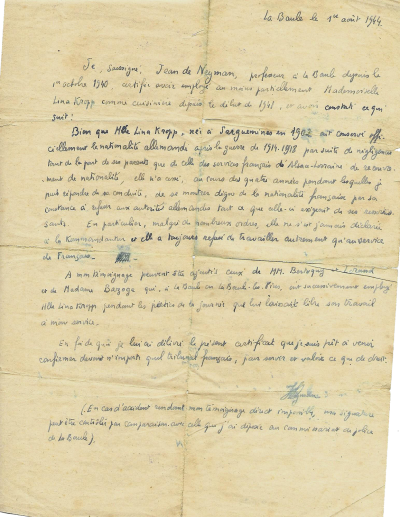 La Baule le 1er août 1944.
Je, soussigné, Jean de Neyman, professeur à La Baule depuis le
1er octobre 1940, certifie avoir employé au moins partiellement Mademoiselle
Lina Kropp comme cuisinière depuis le début de 1941, et avoir constaté ce qui
suit:
Bien que Mlle Lina Kropp, née à Sarguemines en 1902 ait conservé offi-
ciellement la nationalité allemande après la guerre de 1914-1918 par suite de négligences
tant de la part de ses parents que de celle des services français d'Alsace-Lorraine de recouvre-
ment de nationalité, elle n'a cessé, au cours des quatre années pendant lesquelles je
puis répondre de sa conduite, de se montrer digne de la nationalité française par sa
constance à refuser aux autorités allemandes tout ce que celles-ci exigeait de ses
sants. En particulier, malgré de nombreux ordres, elle ne s'est jamais déclarée
à la Kommandantur et elle a toujours refusé de travailler autrement qu'au service
de Français.
A mon témoignage peuvent être ajoutés ceux de MM.
et de Madame Bazoge qui, à La Baule ou La Baule-les-Pins, ont successivement employé
Mlle Lina Kropp pendant les parties de la journée que lui laissait libre son travail
à mon service.
En foi de quoi je lui ai délivré le présent certificat que je suis prêt à venir
confirmer devant n'importe quel tribunal français, pour servir et valoir ce que de droit.
(En cas d'accident rendant mon témoignage direct impossible, ma signature
peut être contrôlée par comparaison avec celle que j'ai déposée au commissariat de police
de La Baule).